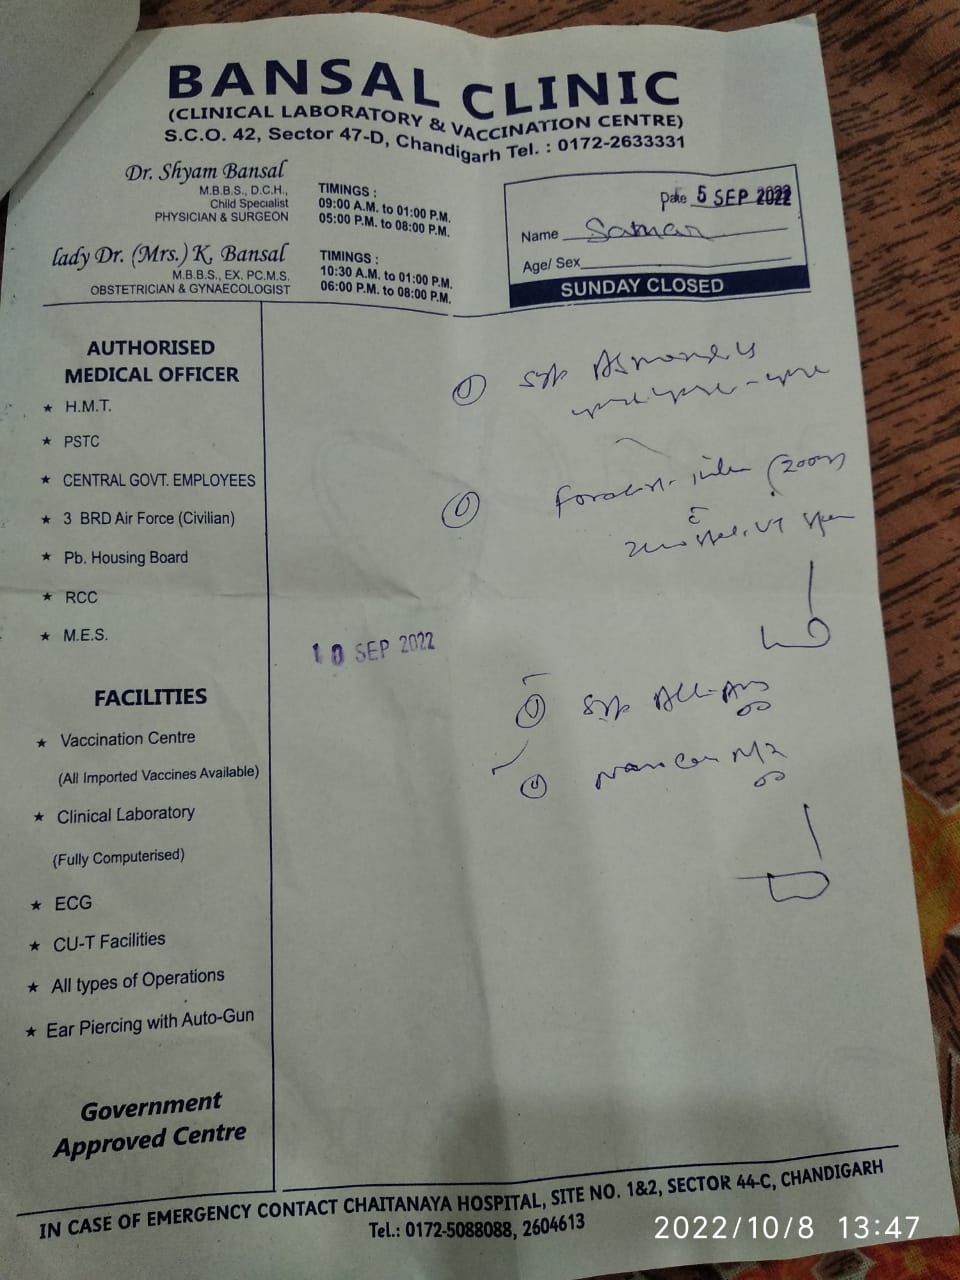 BANSAL CLINIC
(CLINICAL LABORATORY & VACCINATION CENTRE)
S.C.O. 42, Sector 47-D, Chandigarh Tel. : 0172-2633331
Dr. Shyam Bansal
M.B.B.S., D.C.H.,
Child Specialist
PHYSICIAN & SURGEON
TIMINGS :
09:00 A.M. to 01:00 P.M.
05:00 P.M. to 08:00 P.M.
lady Dr. (Mrs.) K. Bansal
M.B.B.S., EX. P.C.M.S.
OBSTETRICIAN & GYNAECOLOGIST
TIMINGS :
10:30 A.M. to 01:00 P.M.
06:00 P.M. to 08:00 P.M.
Date 5 SEP 2022
Name Saman
Age/ Sex
SUNDAY CLOSED
AUTHORISED
MEDICAL OFFICER
★ H.M.T.
★ PSTC
★ CENTRAL GOVT. EMPLOYEES
★ 3 BRD Air Force (Civilian)
★ Pb. Housing Board
★ RCC
★ M.E.S.
FACILITIES
★ Vaccination Centre
(All Imported Vaccines Available)
★ Clinical Laboratory
(Fully Computerised)
★ ECG
★ CU-T Facilities
★ All types of Operations
★ Ear Piercing with Auto-Gun
Government
Approved Centre
Syp
10 SEP 2022
Syp
IN CASE OF EMERGENCY CONTACT CHAITANAYA HOSPITAL, SITE NO. 1&2, SECTOR 44-C, CHANDIGARH
Tel.: 0172-5088088, 2604613
2022/10/8 13:47